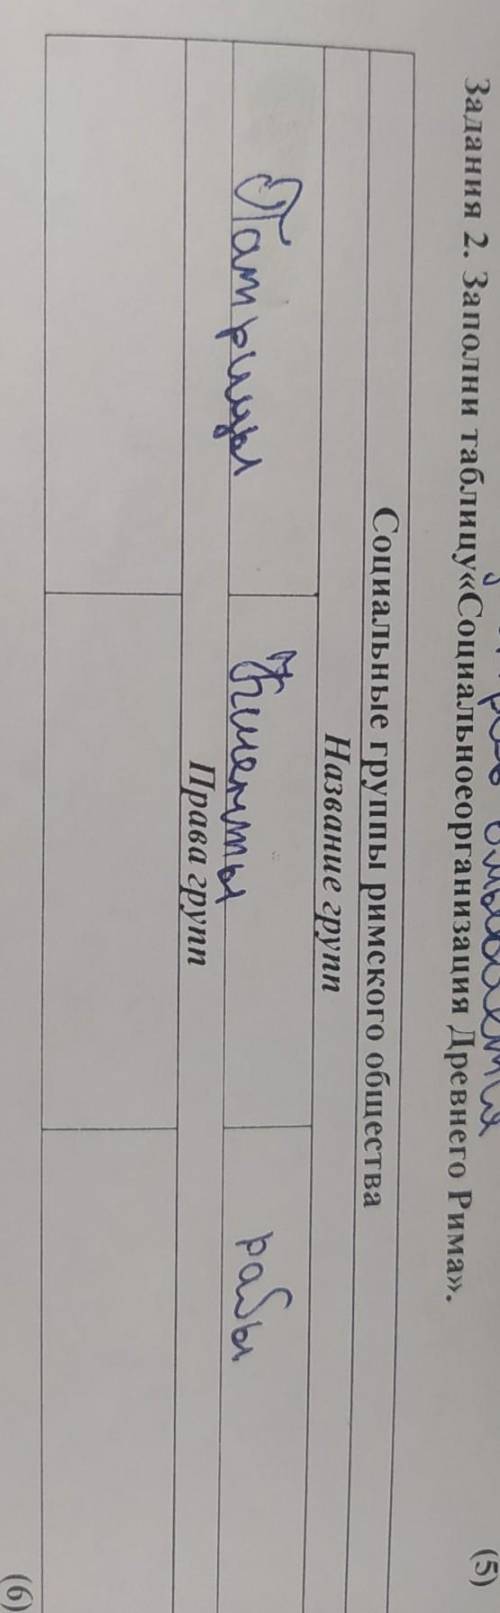 (5)
Задания 2. Заполни таблицу«Социальноеорганизация Древнего Рима».
Социальные группы римского общества
Название групп
Патрицы Клиенты рабы
Права групп
(6)